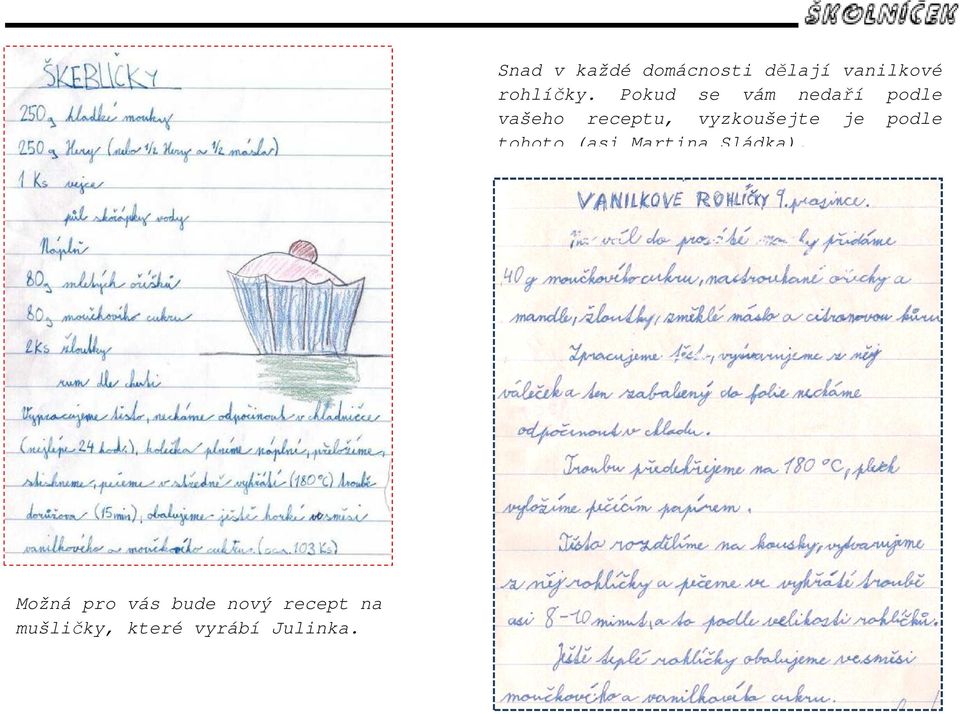 ŠKOLNÍČEK
ŠKEBLIČKY
250g hladké mouky
250g Hery (nebo ½ Hery a ½ másla)
1 Ks vejce
půl skořápky vody
Náplň
80g mletých oříšků
80g moučkového cukru
2Ks žloutky
rum dle chuti
Vypracujeme těsto, necháme odpočinout v chladničce
(nejlépe 24 hod.), kolečka plníme náplní, přeložíme,
stiskneme, pečeme v středně vyhřáté (180°C) troubě
dorůžova (15min), obalujeme ještě horké ve směsi
vanilkového a moučkového cukru. (cca. 103 Ks)
Možná pro vás bude nový recept na
mušličky, které vyrábí Julinka.
Snad v každé domácnosti dělají vanilkové
rohlíčky. Pokud se vám nedaří podle
vašeho receptu, vyzkoušejte je podle
tohoto (asi Martina Sládka).
VANILKOVE ROHLÍČKY 9. prosince.
do přidáme
40g moučkového cukru, nastrouhané ořechy a
mandle, žloutky, změklé máslo a citronovou kůru
Zpracujeme vyvarujeme z něj
váleček a ten zabalený do folie necháme
odpočinout v chladu.
Troubu předehřejeme na 180°C, plech
vyložíme pěčícím papírem.
Těsto rozdělíme na kousky, vytvarujeme
z něj rohlíčky a pečeme ve vyhřáté troubě
asi 8-10 minut, a to podle velikosti rohlíčků.
Ještě teplé rohlíčky obalujeme ve směsi
moučkového a vanilkového cukru.